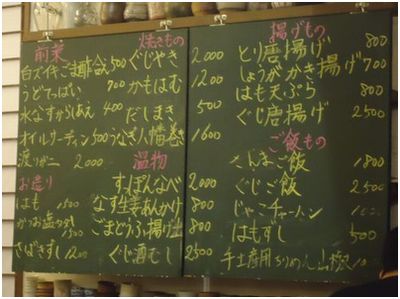 前菜
白ズイキごま酢合え 500
うどてっぱい 700
水なすからしあえ 400
オイルサーディン 500
渡りガニ 2000
お造り
はも 1500
かつお塩タタキ
さばきずし 1200
焼きもの
ぐじやき 2000
かもはむ 1200
だしまき 500
うなぎ八幡巻き 1600
温物
すっぽんなべ 2000
なす生姜あんかけ 800
ごまどうふ揚げ出し 800
ぐじ酒むし 2500
揚げもの
とり唐揚げ 800
しょうがかき揚げ 700
はも天ぷら 800
ぐじ唐揚げ 2500
ご飯もの
さんまご飯 1800
ぐじご飯 2500
じゃこチャーハン
はもすし 500